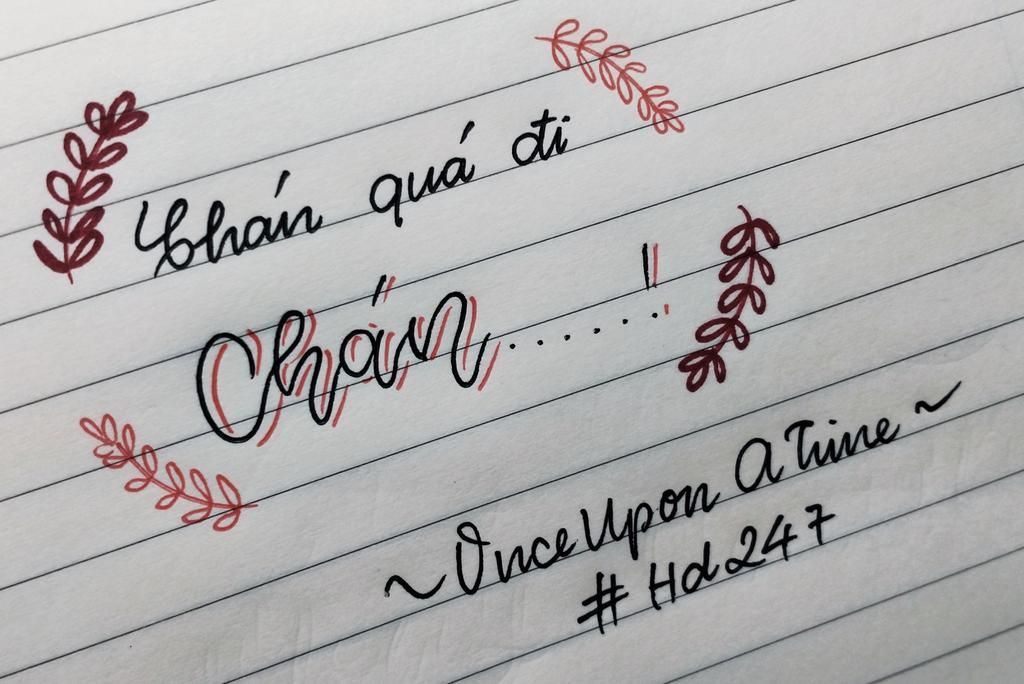 Chán quá đi
Chán.......!
~OnceUpon A Time~
#Hd247